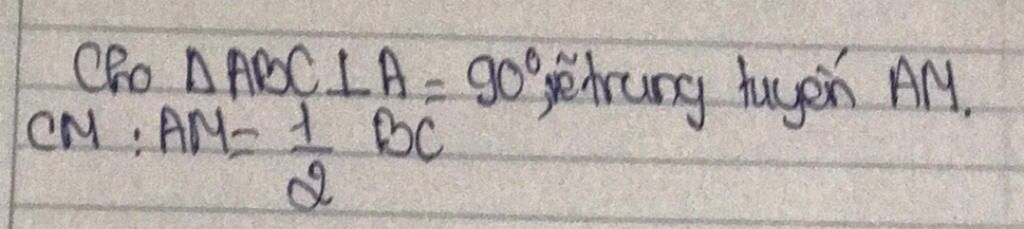 Cho ΔABC⊥A = 90°, vẽ trung tuyến AM.
CM : AM = 1/2 BC